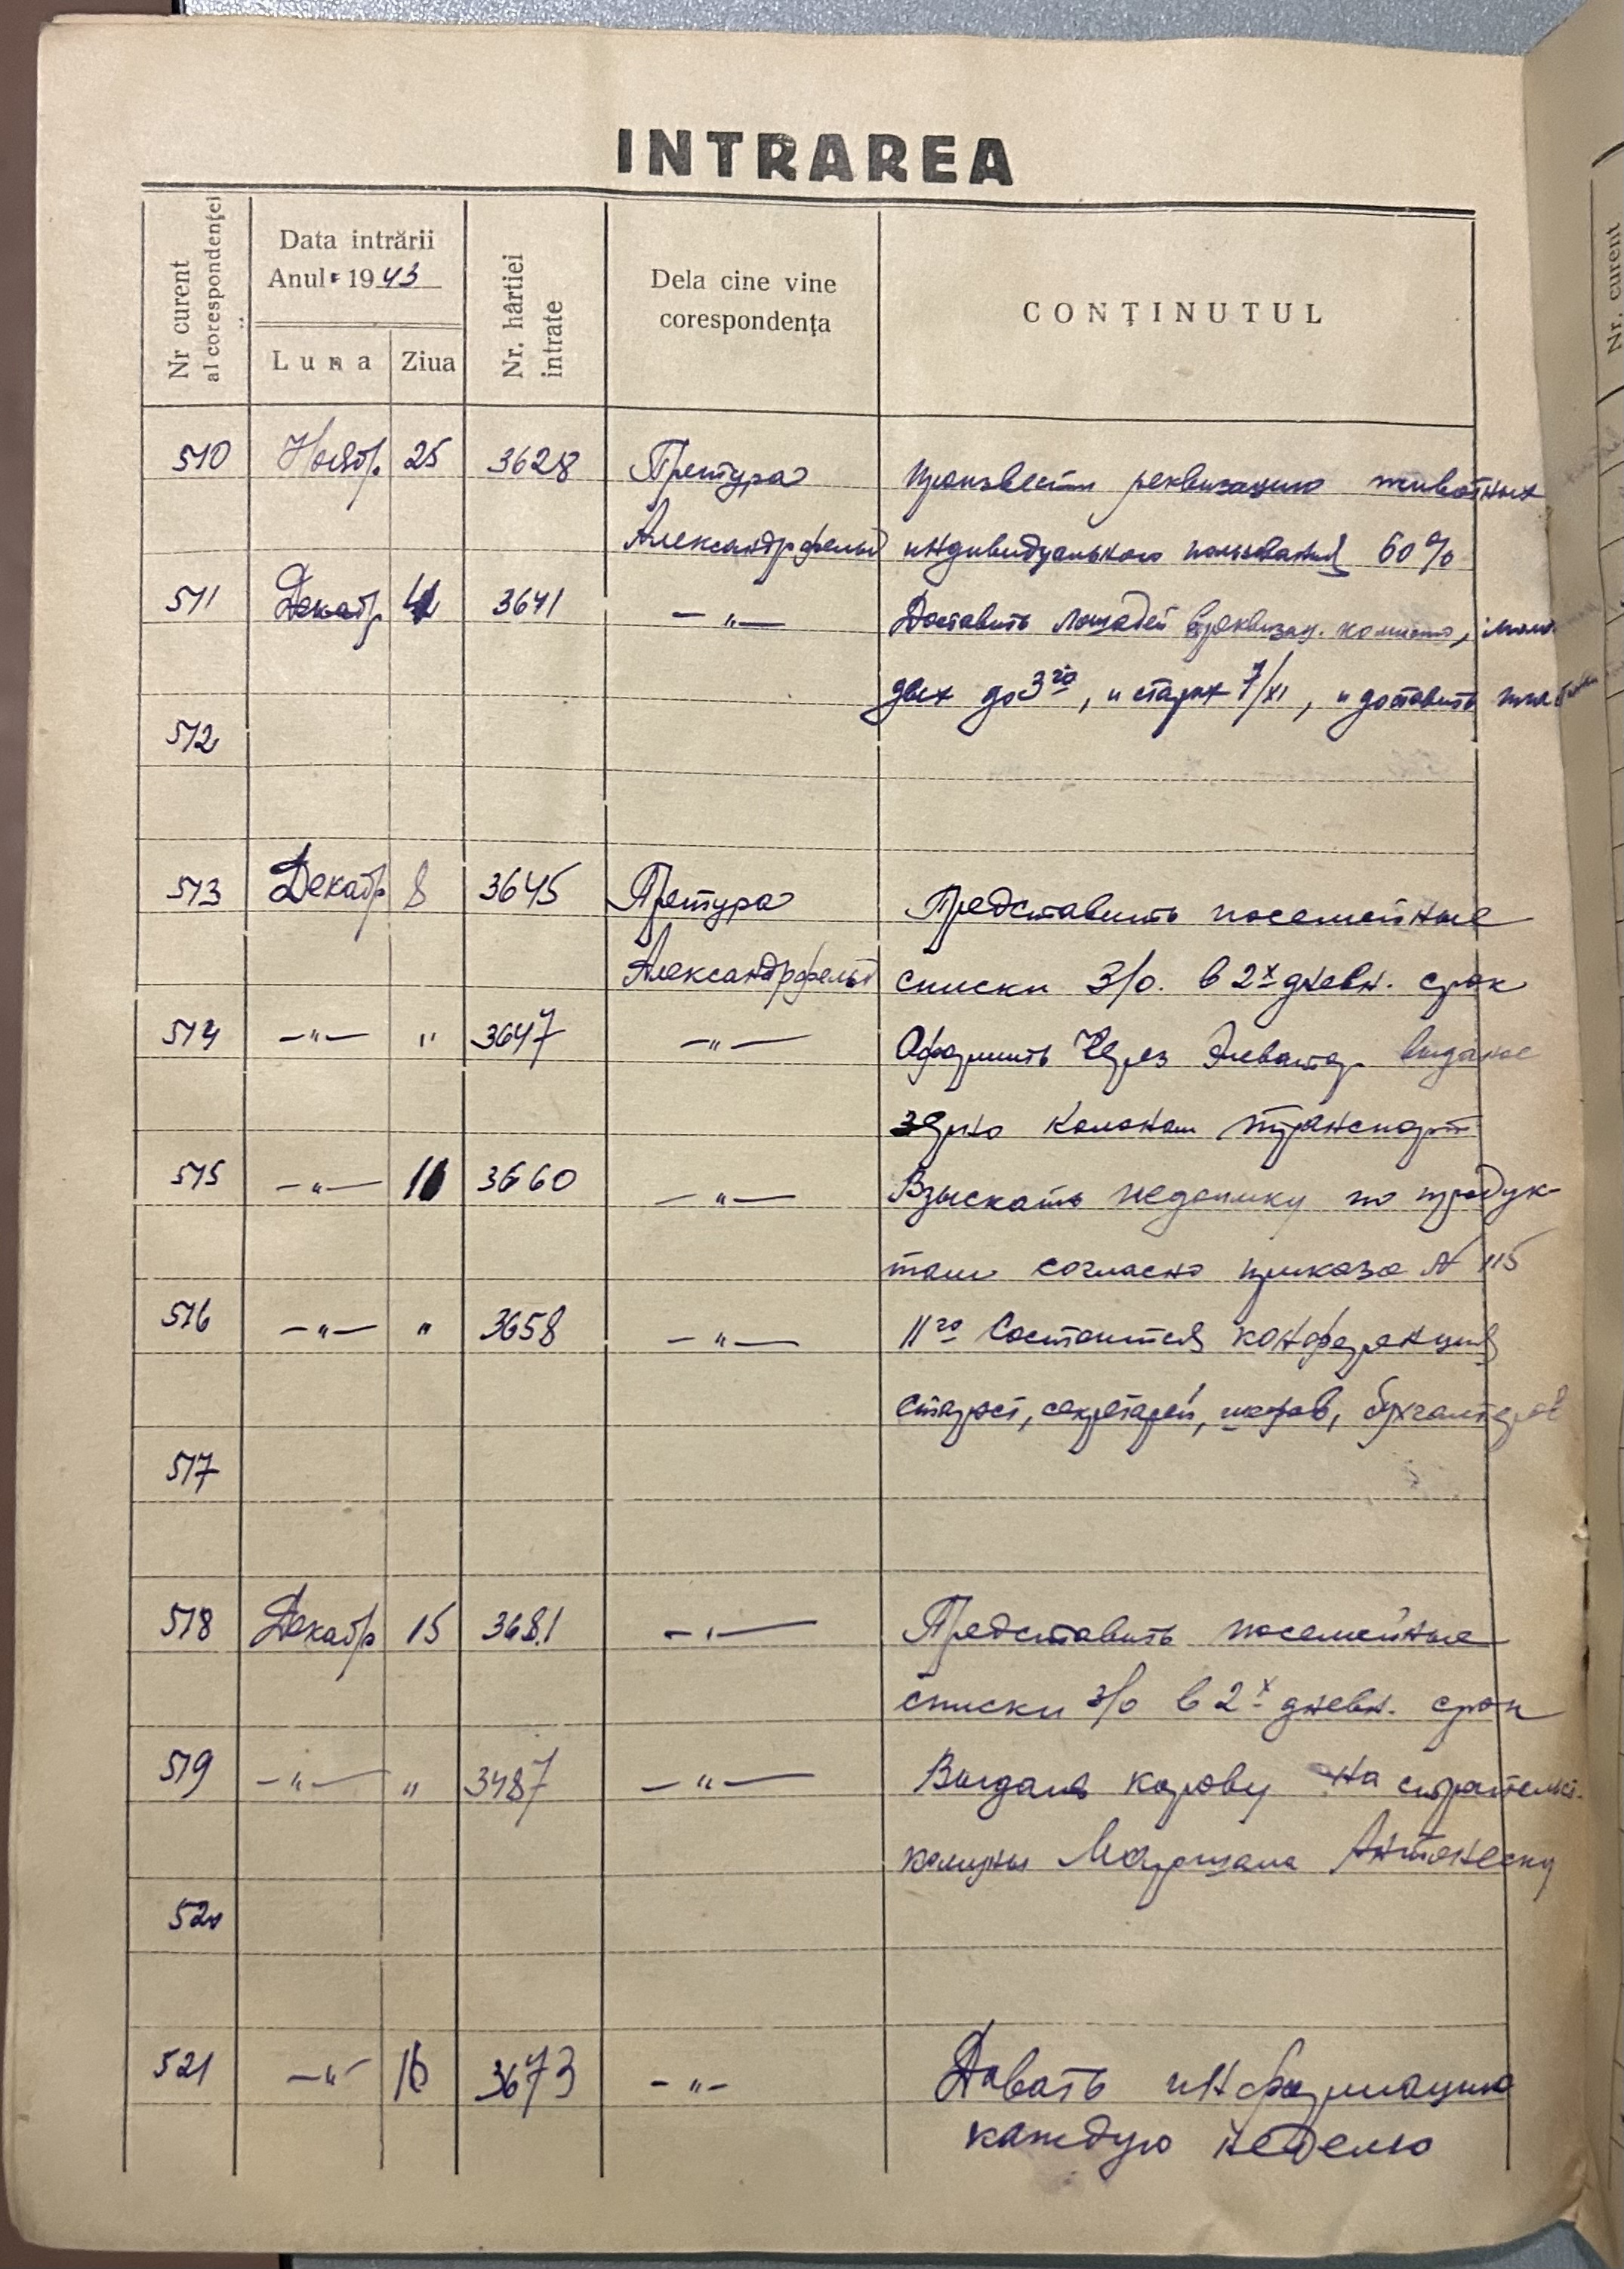 INTRAREA
Nr curent al corespondenței
Data intrării
Anul 1943
Luna Ziua
Nr. hârtiei intrate
Dela cine vine corespondența
CONȚINUTUL
510 Ноябр 25 3628 Претура произвести реквизацию животных
Александрфельд индивидуального пользования 60%
511 Декабр 3641 —"— Доставить лошадей реквизац. , моло
дых до 3го, и старых 7/XI, и доставить
512
513 Декабр 8 3645 Претура Представить посемейные
Александрфельд списки З/о. в 2х дневн. срок
514 —"— " 3647 —"— Оформить Через Элеватор выданое
зерно Колонам транспорт
515 —"— 11 3660 —"— Взыскать недоимку по продук-
там согласно приказа № 115
516 —"— " 3658 —"— 11го Состоится конференция
Старост, секретарей, шефов, бухгалтеров
517
518 Декабр 15 3681 —"— Представить посемейные
списки з/о в 2х дневн. срок
519 —"— " 3487 —"— Выдать корову на строительст.
комуны Маршала Антонеску
520
521 —"— 16 3673 —"— Давать информацию
каждую неделю
Nr. curent